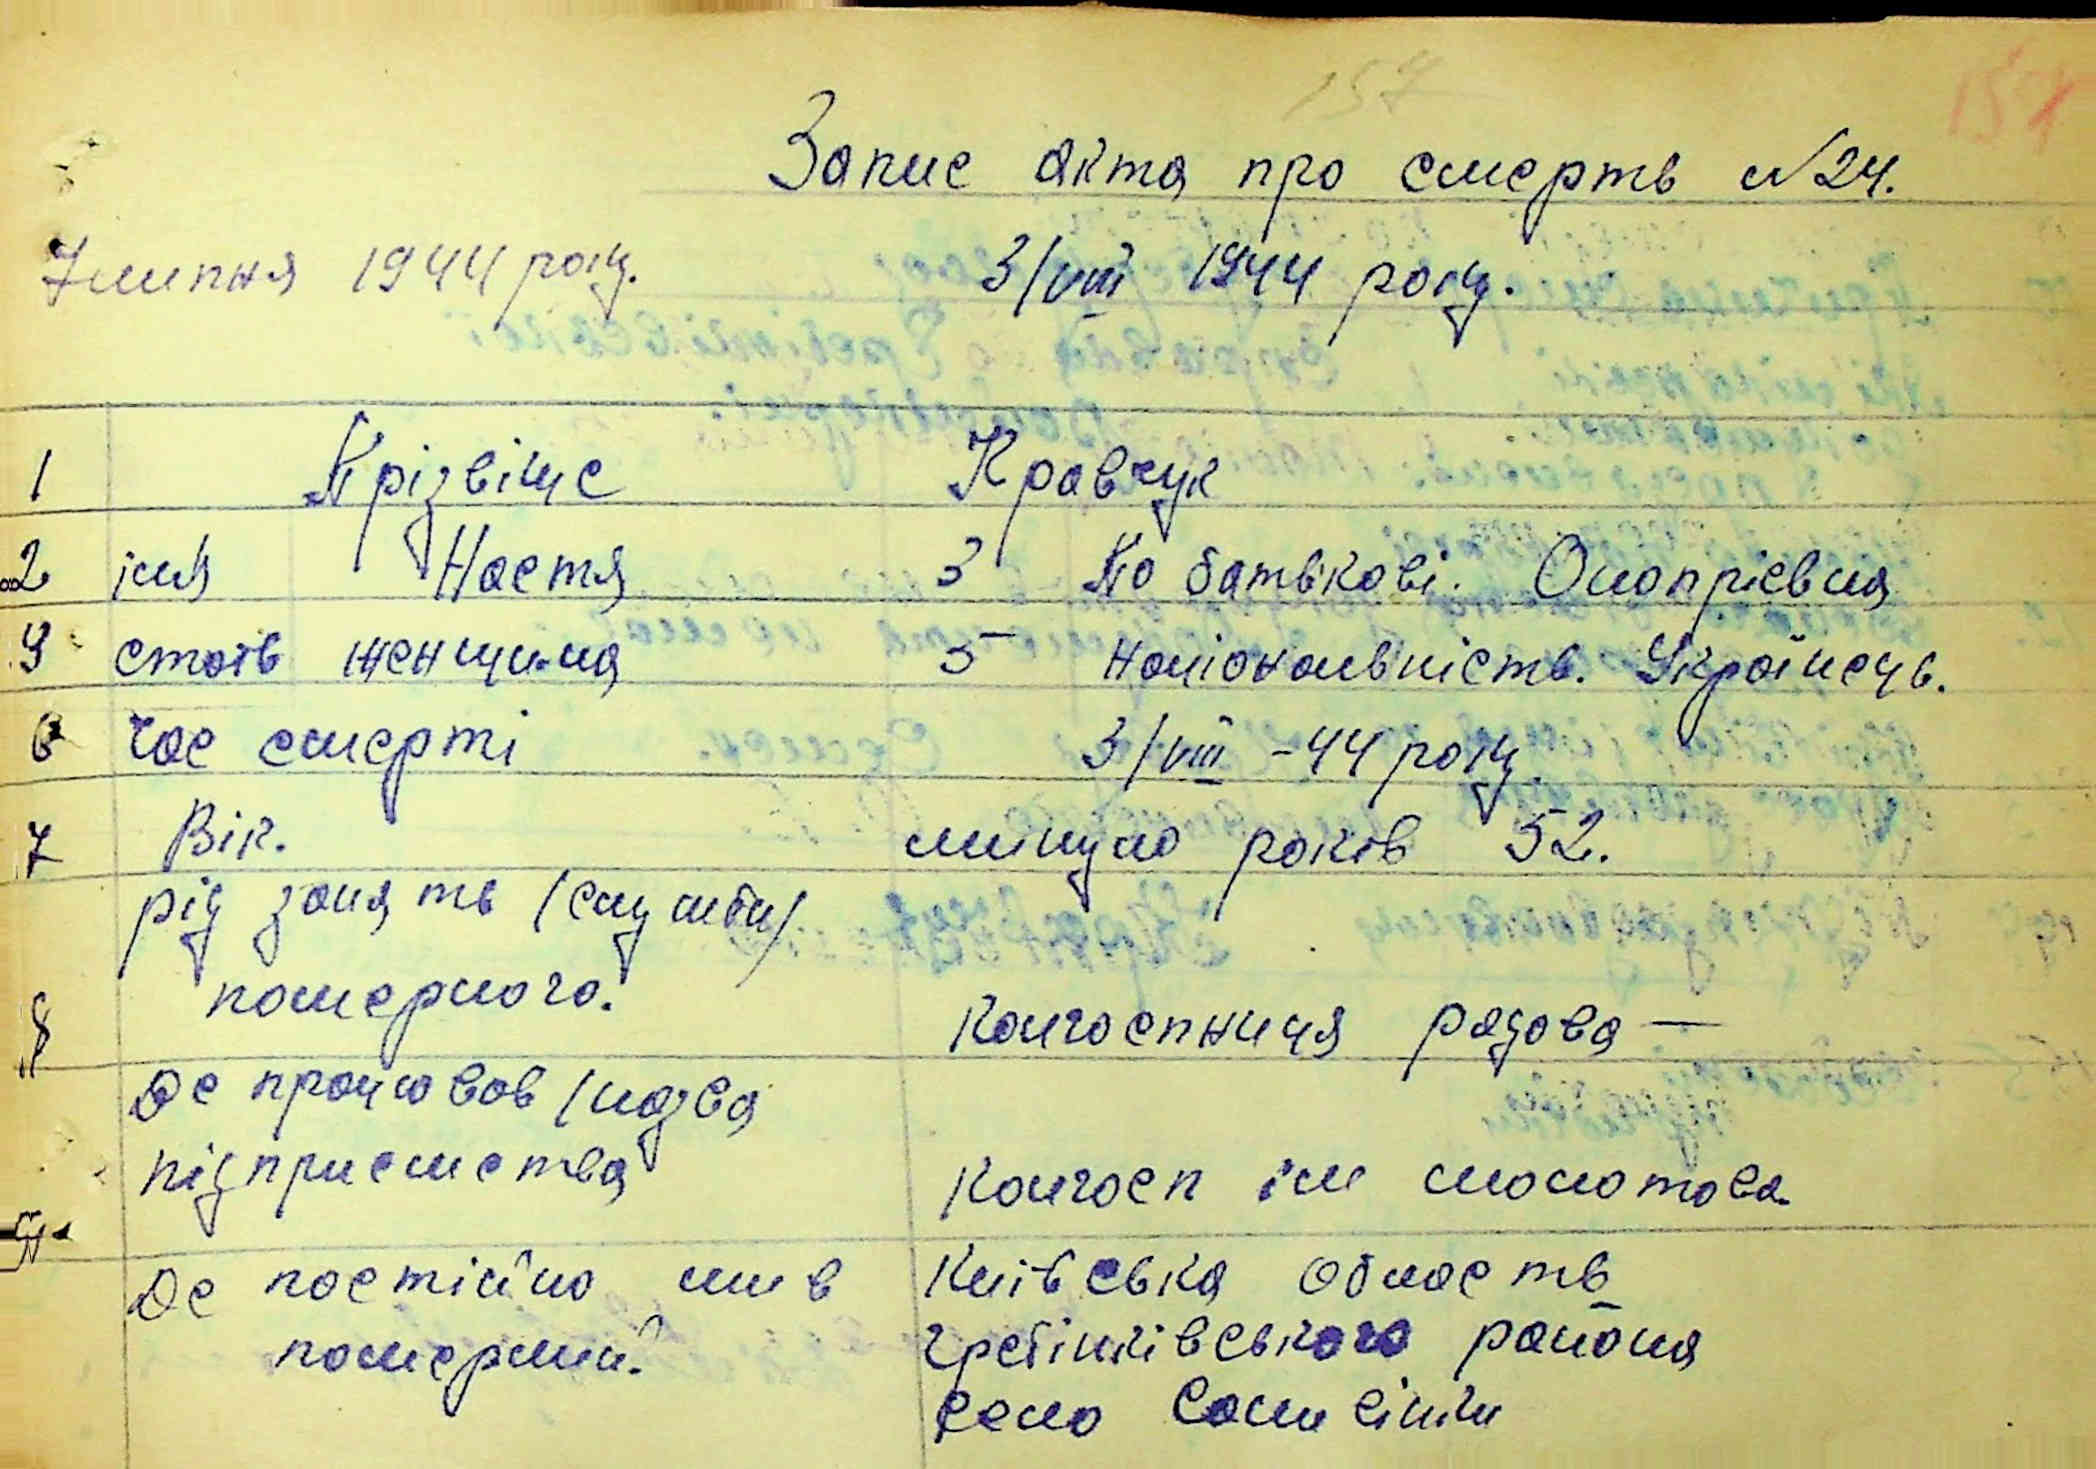 157 157
Запис акта про смерть №24.
7 липня 1944 року. 3/VIII 1944 року.
1 Прізвіще Кравчук
2 імя Настя 3 По батькові. Оноприєвна
4 стать женщина 5 національність. Українець.
6 Час смерті 3/VIII -44 року
7 Вік. минуло років 52.
рід занять (служби)
8 померлого. Колгоспниця рядова —
Де працював (назва
9 підприємства Колгосп ім молотова.
Де постійно жив Київська область
померлий. гребінківського района
село Саливінки